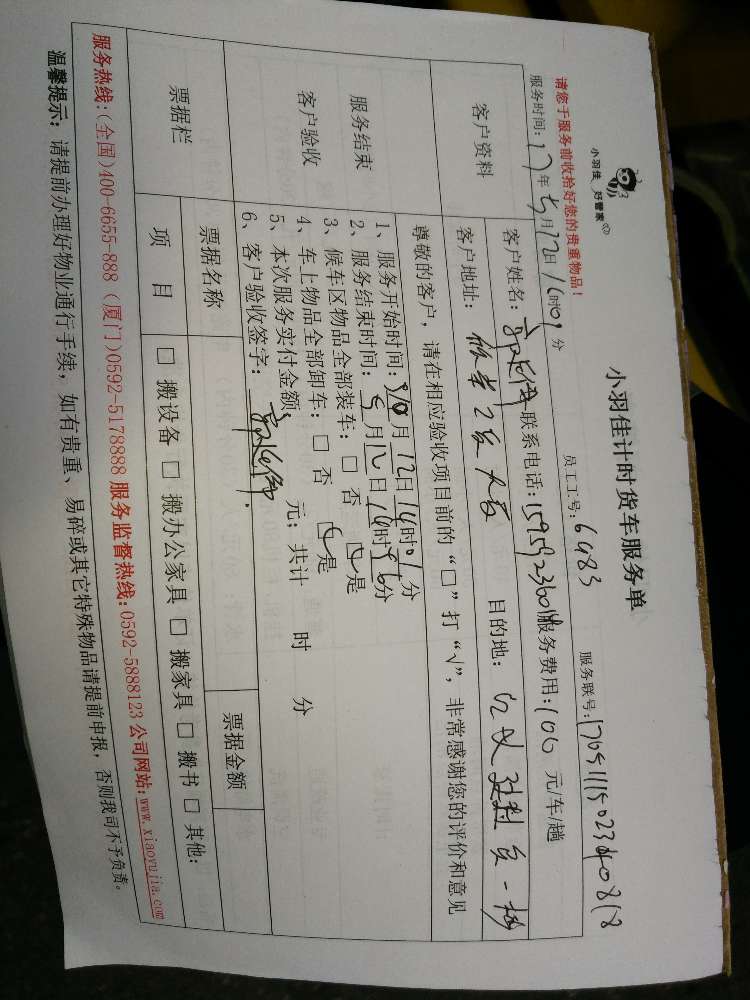 小羽佳 好管家
小羽佳计时货车服务单
请您于服务前收拾好您的贵重物品！
员工工号：6983
服务联号：
服务时间：17年5月12日16时0分
客户资料
客户姓名：
联系电话：
服务费用：100 元/车/趟
客户地址：
目的地：
服务结束
客户验收
尊敬的客户，请在相应验收项目前的“□”打“√”，非常感谢您的评价和意见
1、服务开始时间：月12日16时01分
2、服务结束时间：5月12日16时56分
3、候车区物品全部装车：□ 否 ☑是
4、车上物品全部卸车：□ 否 ☑是
5、本次服务实付金额 元；共计 时 分
6、客户验收签字：
票据栏
票据名称
票据金额
项 目
□ 搬设备 □ 搬办公家具 □ 搬家具 □ 搬书 □ 其他：
服务热线：(全国)400-6655-888 (厦门)0592-5178888 服务监督热线：0592-5888123 公司网站：www.xiaoyujia.com
温馨提示：请提前办理好物业通行手续，如有贵重、易碎或其它特殊物品请提前申报，否则我司不予负责。